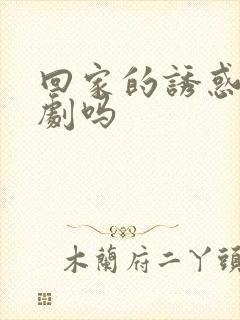 回家的誘惑
劇吗
木蘭府二丫頭